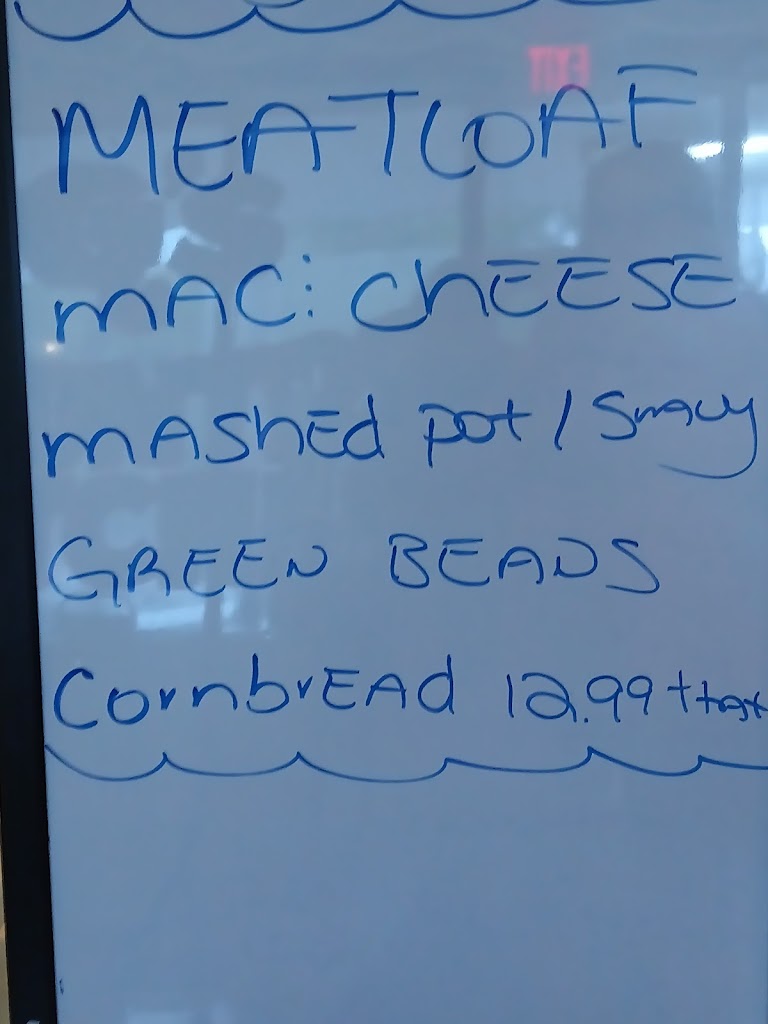 MEATLOAF
MAC: CHEESE
MASHED POT / Gravy
GREEN BEANS
CornbrEAd 12.99 + tax
EXIT